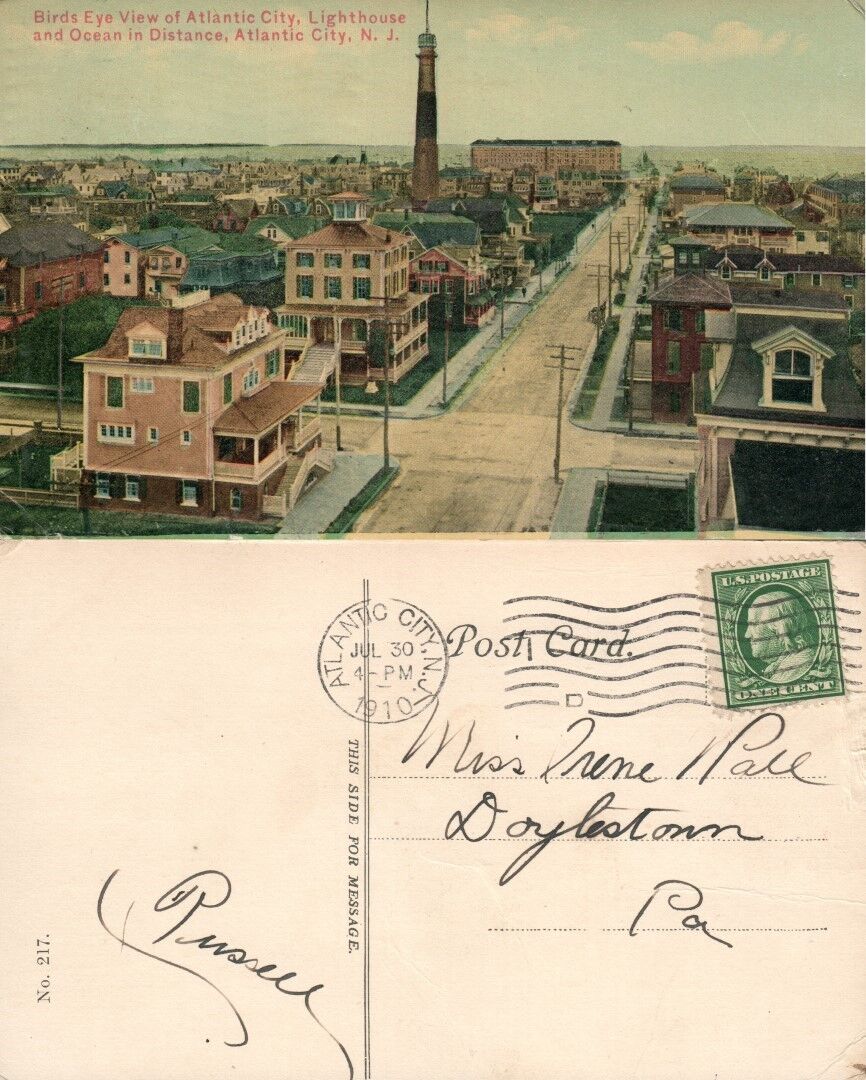 Birds Eye View of Atlantic City, Lighthouse
and Ocean in Distance, Atlantic City, N. J.
ATLANTIC CITY, N.J.
JUL 30
4-PM
1910
D
Post Card.
U.S. POSTAGE
ONE CENT
THIS SIDE FOR MESSAGE.
No. 217.
Miss Irene
Doylestown
Pa
Russell